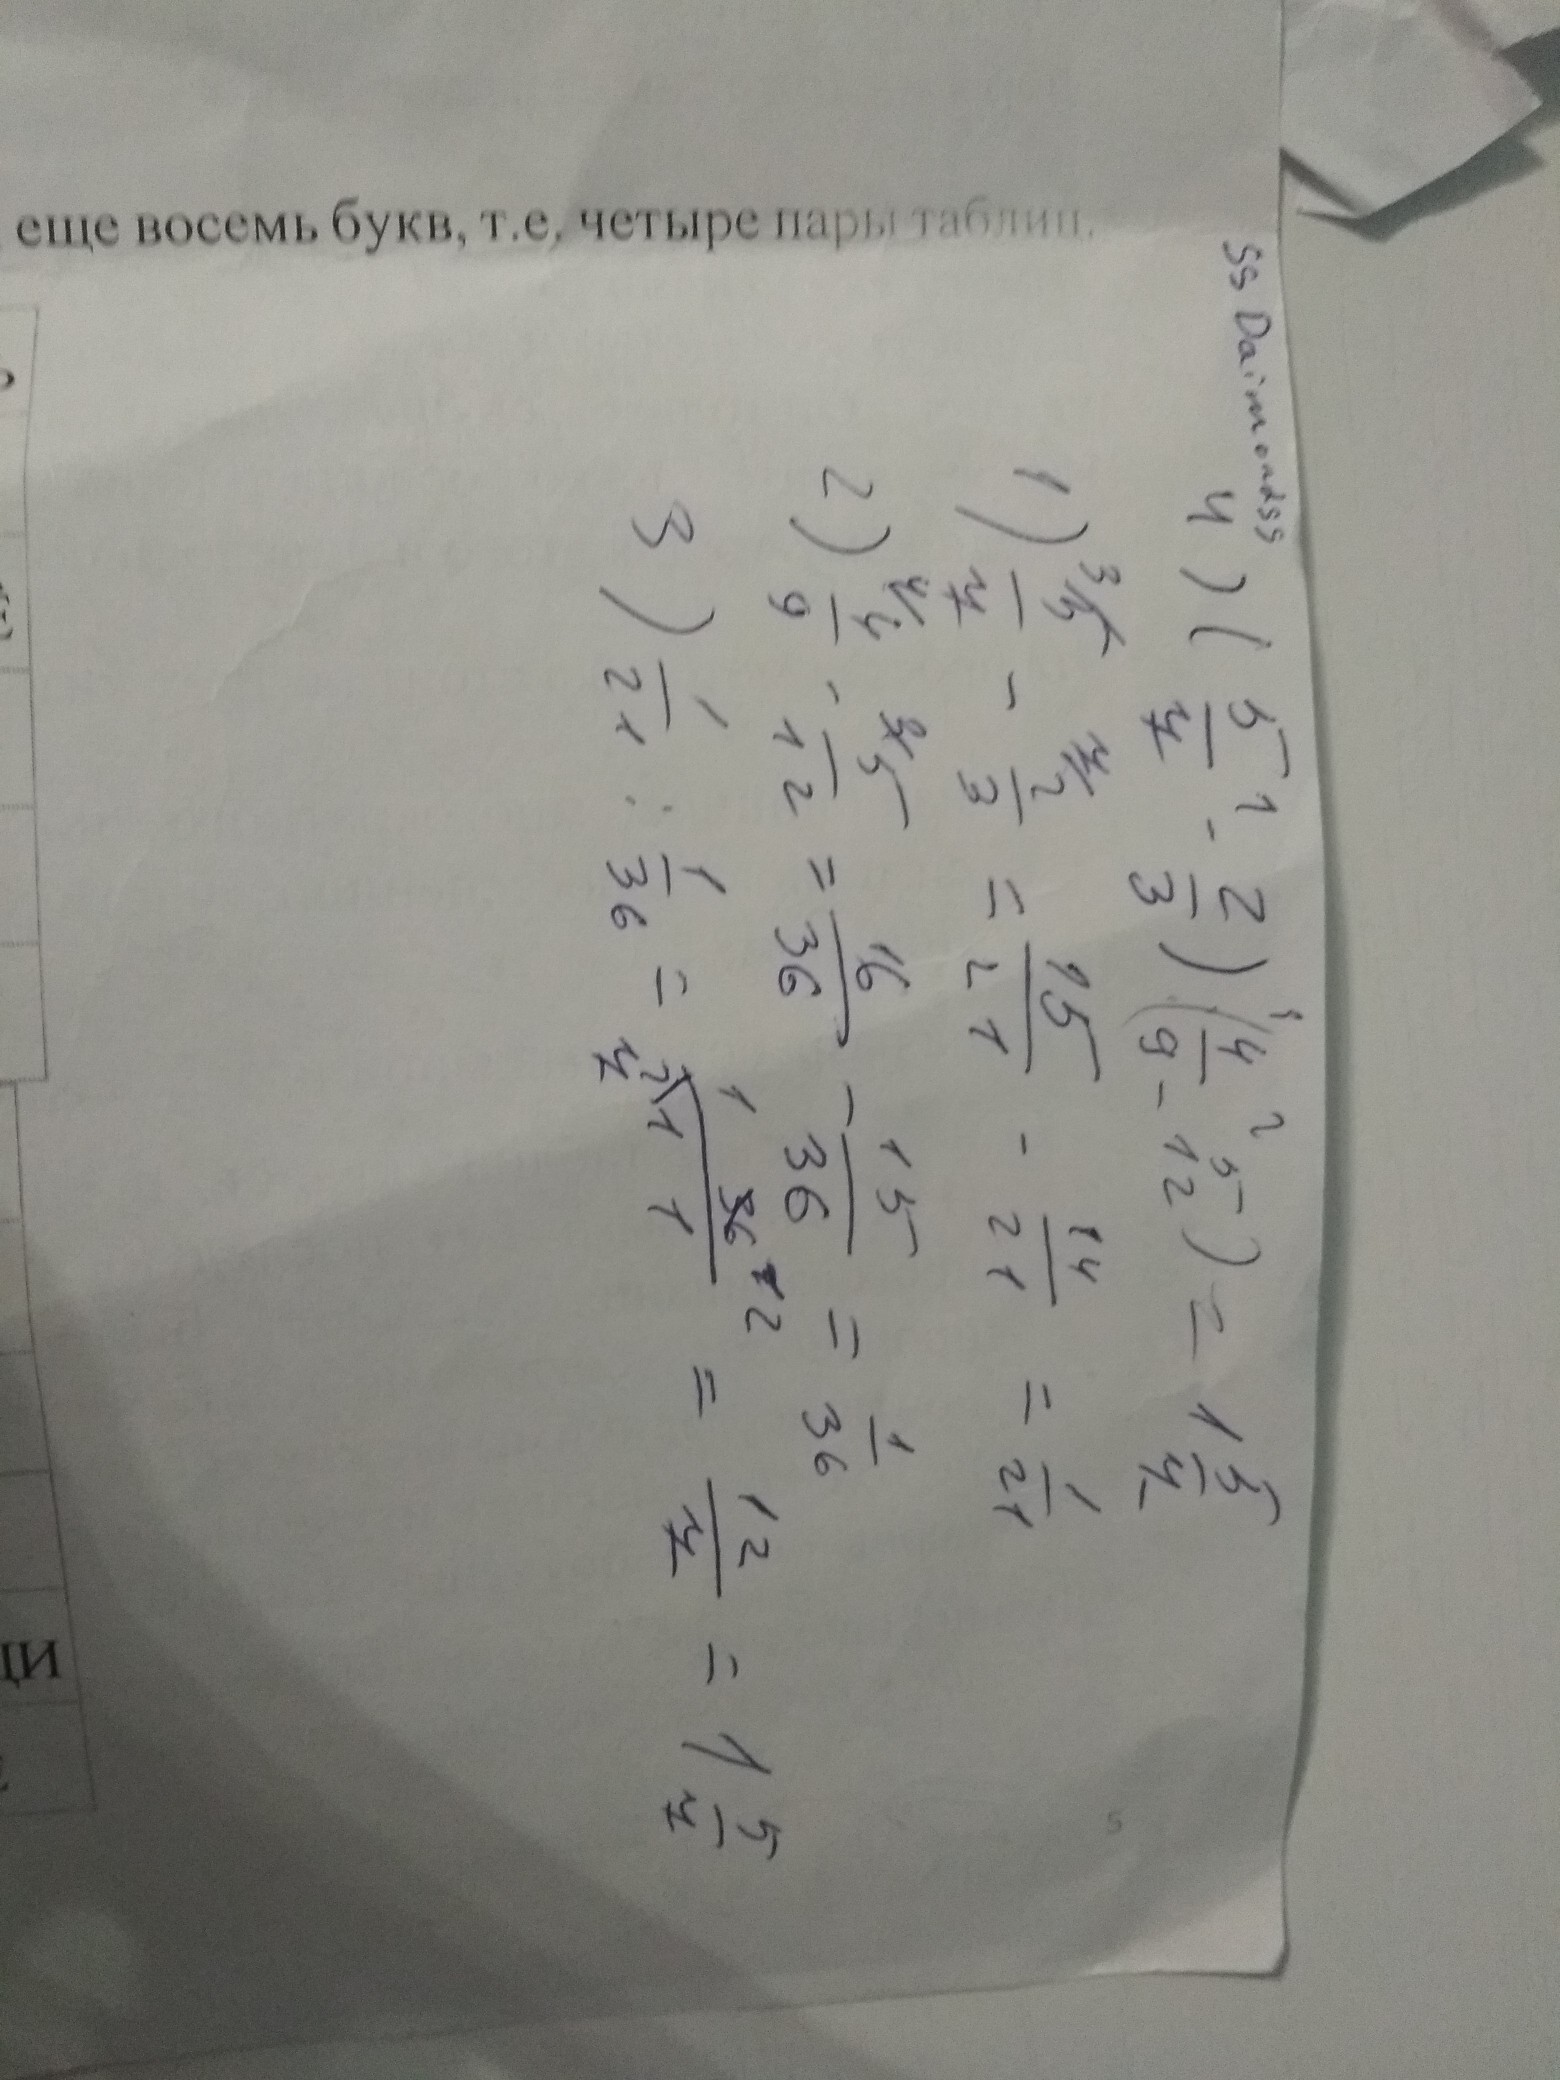 еще восемь букв, т.е. четыре пары таблиц.
SS Daimondss
4) (5/7 - 2/3) (4/9 - 5/12) = 1 5/7
1) 5/7 - 2/3 = 15/21 - 14/21 = 1/21
2) 4/9 - 5/12 = 16/36 - 15/36 = 1/36
3) 1/21 : 1/36 = 1 36 12/7 21 1 = 12/7 = 1 5/7
ЦИ